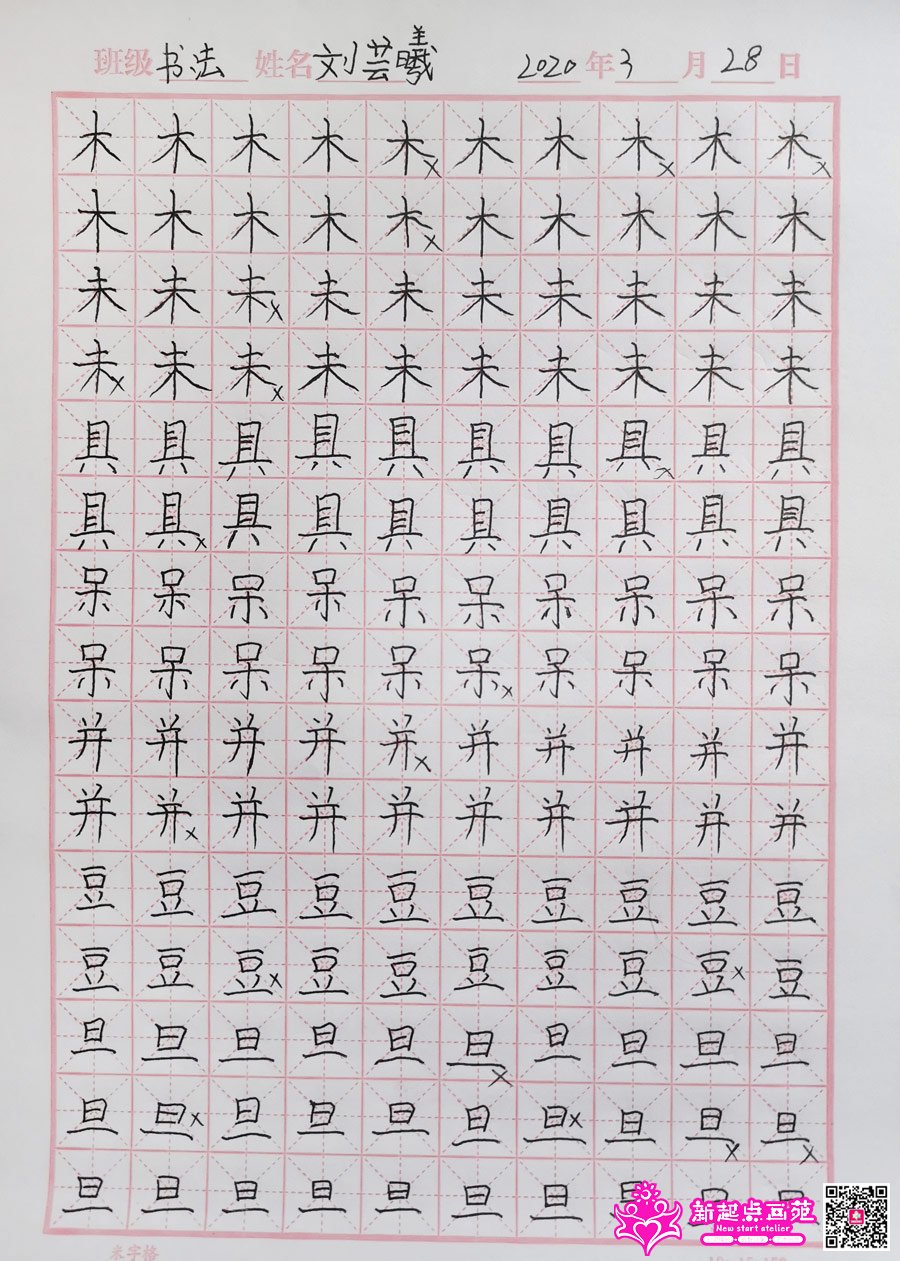 班级 书法 姓名 刘芸曦 2020年3月28日
木木木木木x木木木x木木x
木木木木木x木木木木木
未未未x未未未未未未未
未x未未x未未未未未未未
具具具具具具具具x具具
具具x具具具具具具具具
呆呆呆呆呆呆呆呆呆呆
呆呆呆呆呆呆x呆呆呆呆
并并并并并x并并并并并
并并x并并并并并并并并
豆豆豆豆豆豆豆豆豆豆
豆豆豆x豆豆豆豆豆豆x豆
旦旦旦旦旦旦x旦旦旦旦
旦旦x旦旦旦旦旦x旦旦x旦x
旦旦旦旦旦旦旦旦旦旦
新起点画苑
New start atelier
米字格